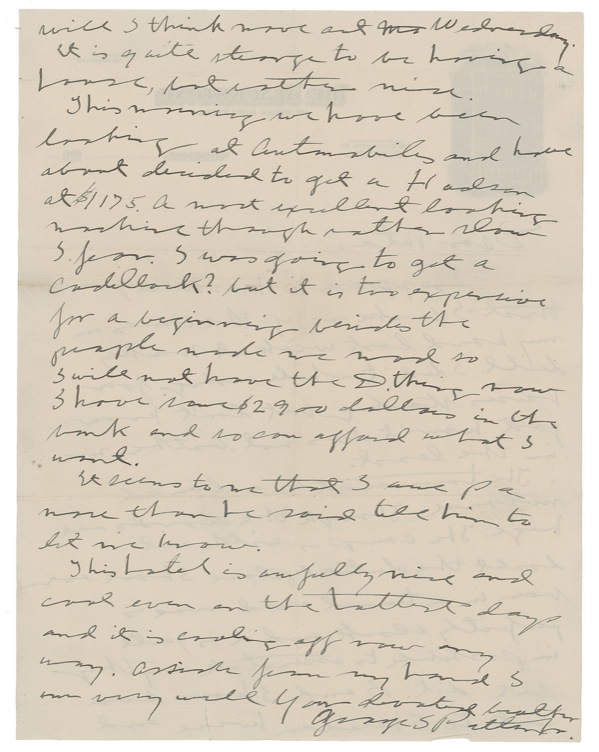 will I think move out Mo Wednesday.
It is quite strange to be having a
house, but rather nice.
This morning we have been
looking at Automobiles and have
about decided to get a Hudson
at $1175. A most excellent looking
machine though rather slow
I fear. I was going to get a
Cadillack? but it is too expensive
for a beginning besides the
people made me mad so
I will not have the D. thing now
I have some $2900 dollars in the
bank and so can afford what I
want.
It seems to me that I owe pa
more than he said tell him to
let me know.
This hotel is awfully nice and
cool even on the hottest days
and it is cooling off now any
way. Asside from my hand I
am very well Your devoted brother
George S Patton Jr.